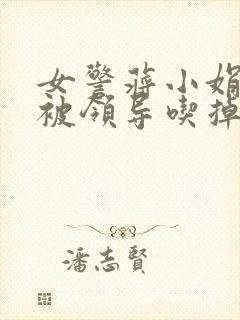 女警蒋小娟
被领导喫掉
潘志賢